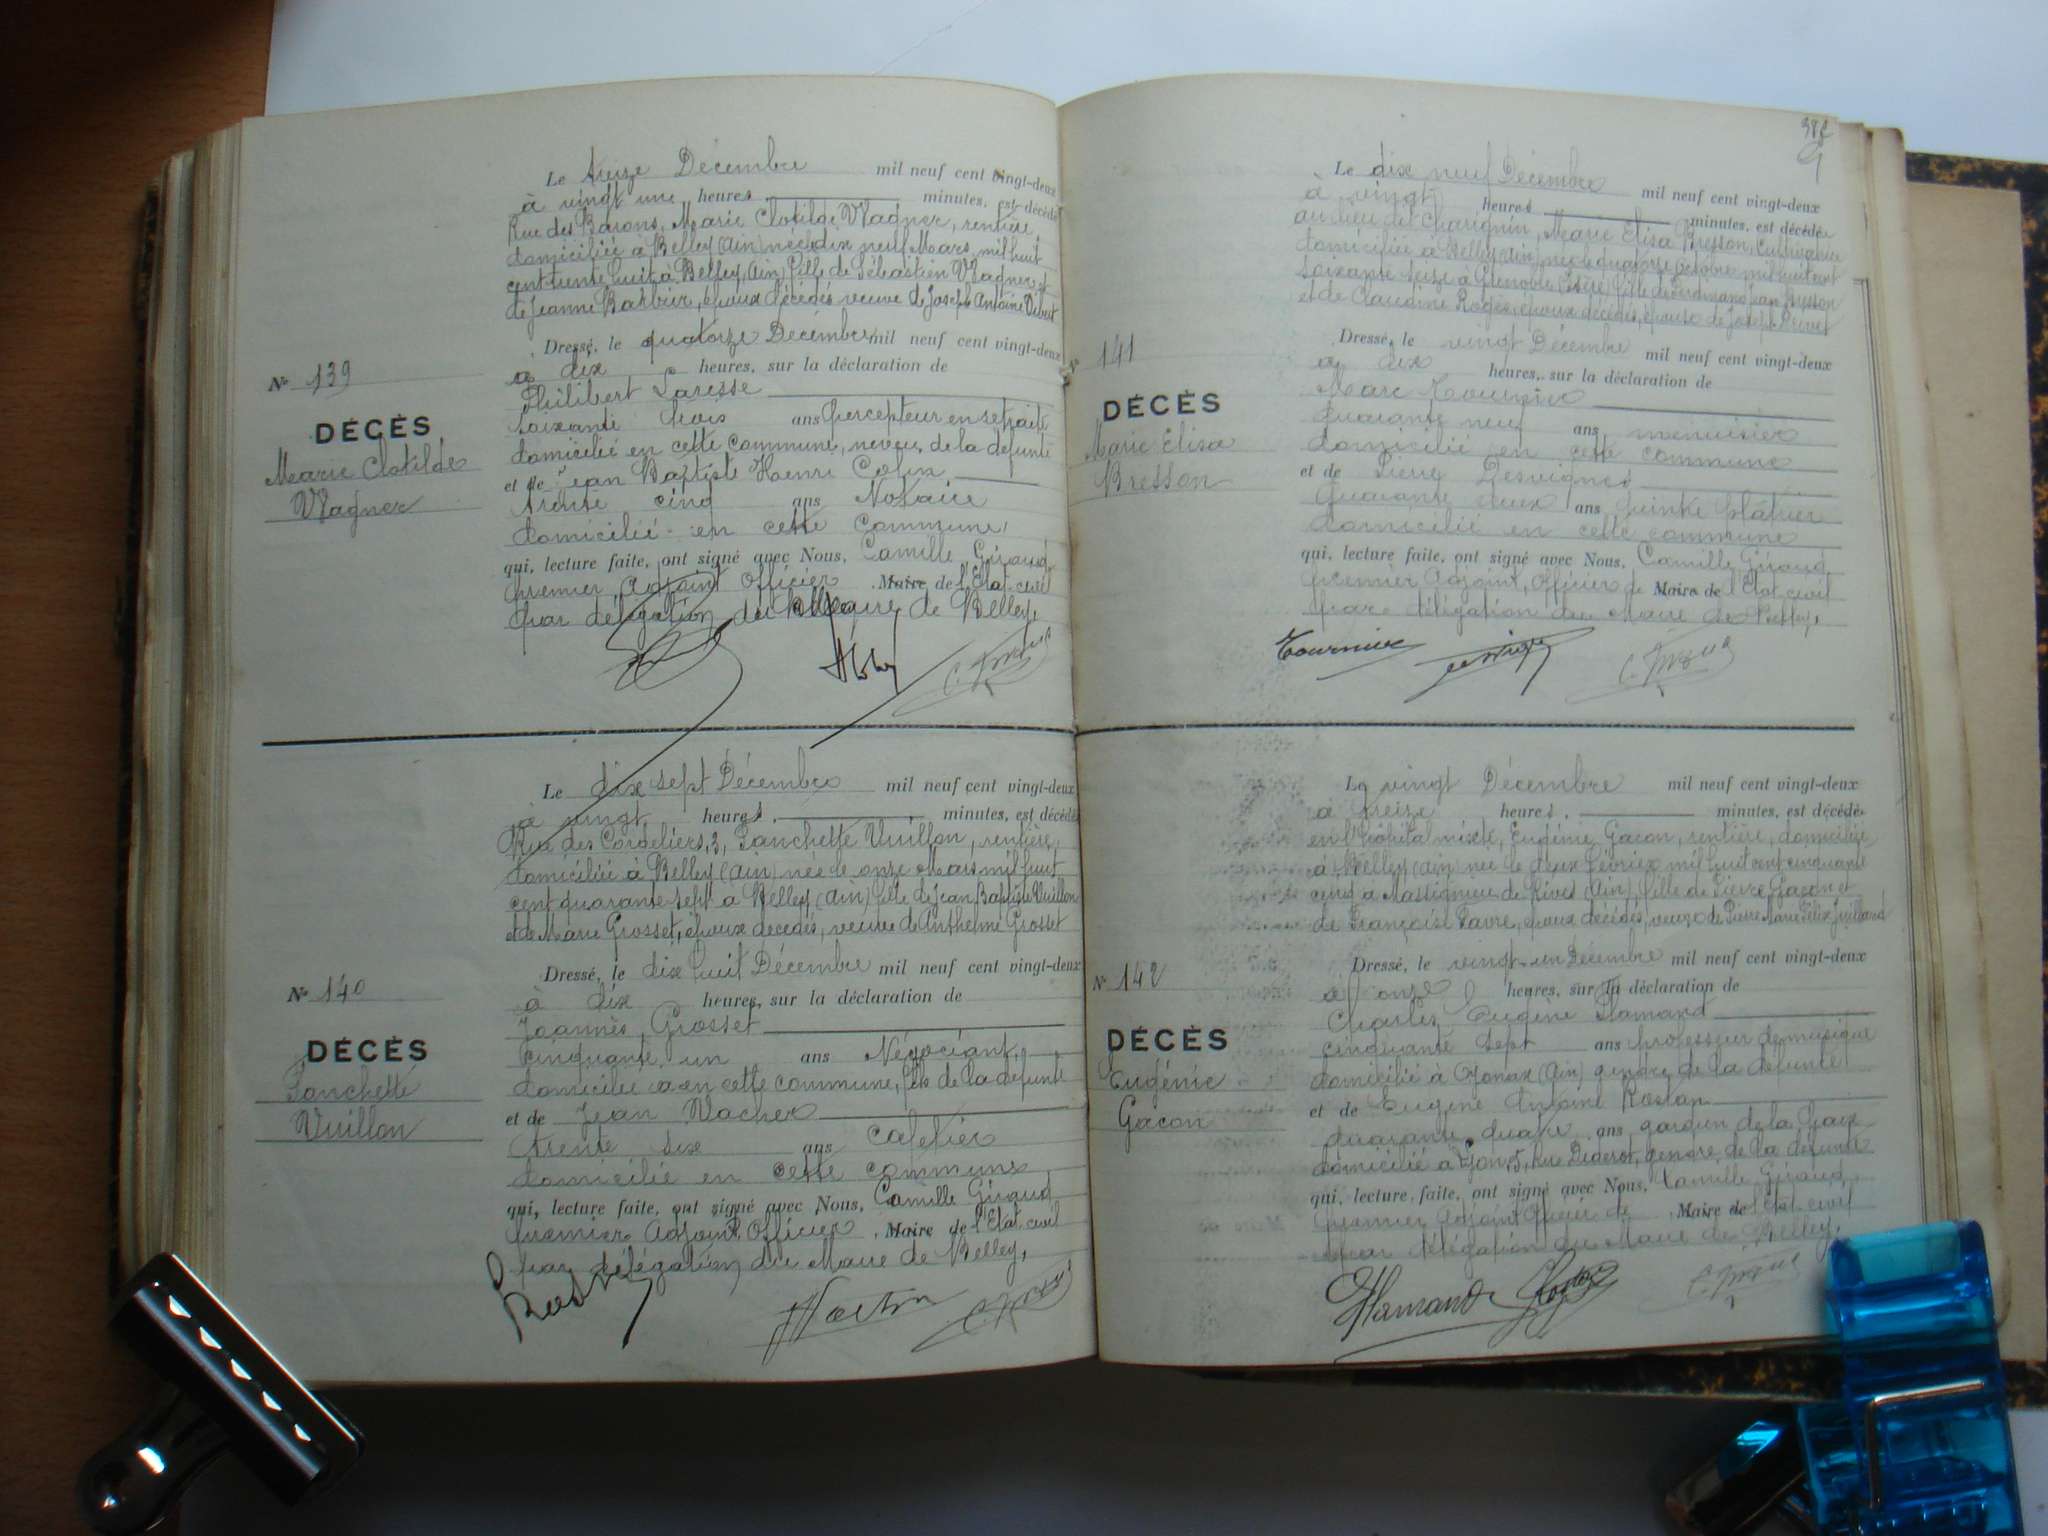 Le treize Décembre mil neuf cent vingt-deux
à vingt une heures minutes, est décédée
Rue des Barons, Marie Clotilde Wagner, rentière,
domiciliée à Belley (Ain) née le dix neuf Mars mil huit
cent trente huit à Belley (Ain) fille de Sébastien Wagner et
de Jeanne Barbier, époux décédés veuve de Joseph Antoine
N° 139
DÉCÈS
Marie Clotilde
Wagner
Dressé, le quatorze Décembre mil neuf cent vingt-deux
à dix heures, sur la déclaration de
Philibert
soixante trois ans percepteur en retraite
domicilié en cette commune, neveu de la défunte
et de Jean Baptiste Henri
trente cinq ans Notaire
domicilié en cette commune
qui, lecture faite, ont signé avec Nous, Camille Giraud
premier Adjoint Officier Maire de l'Etat civil
par délégation du Maire de Belley,
Le dix sept Décembre mil neuf cent vingt-deux
à vingt heures, minutes, est décédée
Rue des Cordeliers, 3, Fanchette Vuillon, rentière,
domiciliée à Belley (Ain) née le onze Mars mil huit
cent quarante sept à Belley (Ain) fille de Jean Baptiste Vuillon
et de Marie Grosset, époux décédés, veuve de Anthelme Grosset
N° 140
DÉCÈS
Fanchette
Vuillon
Dressé, le dix huit Décembre mil neuf cent vingt-deux
à dix heures, sur la déclaration de
Joannès Grosset
cinquante un ans Négociant
domicilié en cette commune, fils de la défunte
et de Jean
trente six ans cafetier
domicilié en cette commune
qui, lecture faite, ont signé avec Nous, Camille Giraud
premier Adjoint Officier Maire de l'Etat civil
par délégation du Maire de Belley,
Le dix neuf Décembre mil neuf cent vingt-deux
à vingt heures minutes, est décédée
au lieu de Charignin, Marie Elisa Bresson, Cultivatrice
domiciliée à Belley (Ain) née le quatorze octobre mil huit cent
soixante seize à Grenoble (Isère) fille de Ferdinand Jean Bresson
et de Claudine époux décédés, épouse de Joseph
N° 141
DÉCÈS
Marie Elisa
Bresson
Dressé, le vingt Décembre mil neuf cent vingt-deux
à dix heures, sur la déclaration de
Marc Tournier
quarante neuf ans menuisier
domicilié en cette commune
et de Pierre Desvignes
quarante deux ans peintre plâtrier
domicilié en cette commune
qui, lecture faite, ont signé avec Nous, Camille Giraud
premier Adjoint, Officier de Maire de l'Etat civil
par délégation du Maire de Belley,
Tournier
Le vingt Décembre mil neuf cent vingt-deux
à treize heures, minutes, est décédée
en l'hôpital mixte, Eugénie Gacon, rentière, domiciliée
à Belley (Ain) née le deux février mil huit cent cinquante
cinq à Massignieu de Rives (Ain) fille de Pierre Gacon et
de Françoise Favre, époux décédés, veuve de Pierre Marie Félix Juilland
N° 142
DÉCÈS
Eugénie
Gacon
Dressé, le vingt un Décembre mil neuf cent vingt-deux
à onze heures, sur la déclaration de
Charles Eugène Hamand
cinquante sept ans professeur de musique
domicilié à Oyonax (Ain) gendre de la défunte
et de Eugène Antoine Roslan
quarante quatre ans, gardien de la Paix
domicilié à Lyon 5, rue Diderot, gendre de la défunte
qui, lecture faite, ont signé avec Nous, Camille Giraud
premier Adjoint de Maire de l'Etat civil
par délégation du Maire de Belley,
Hamand